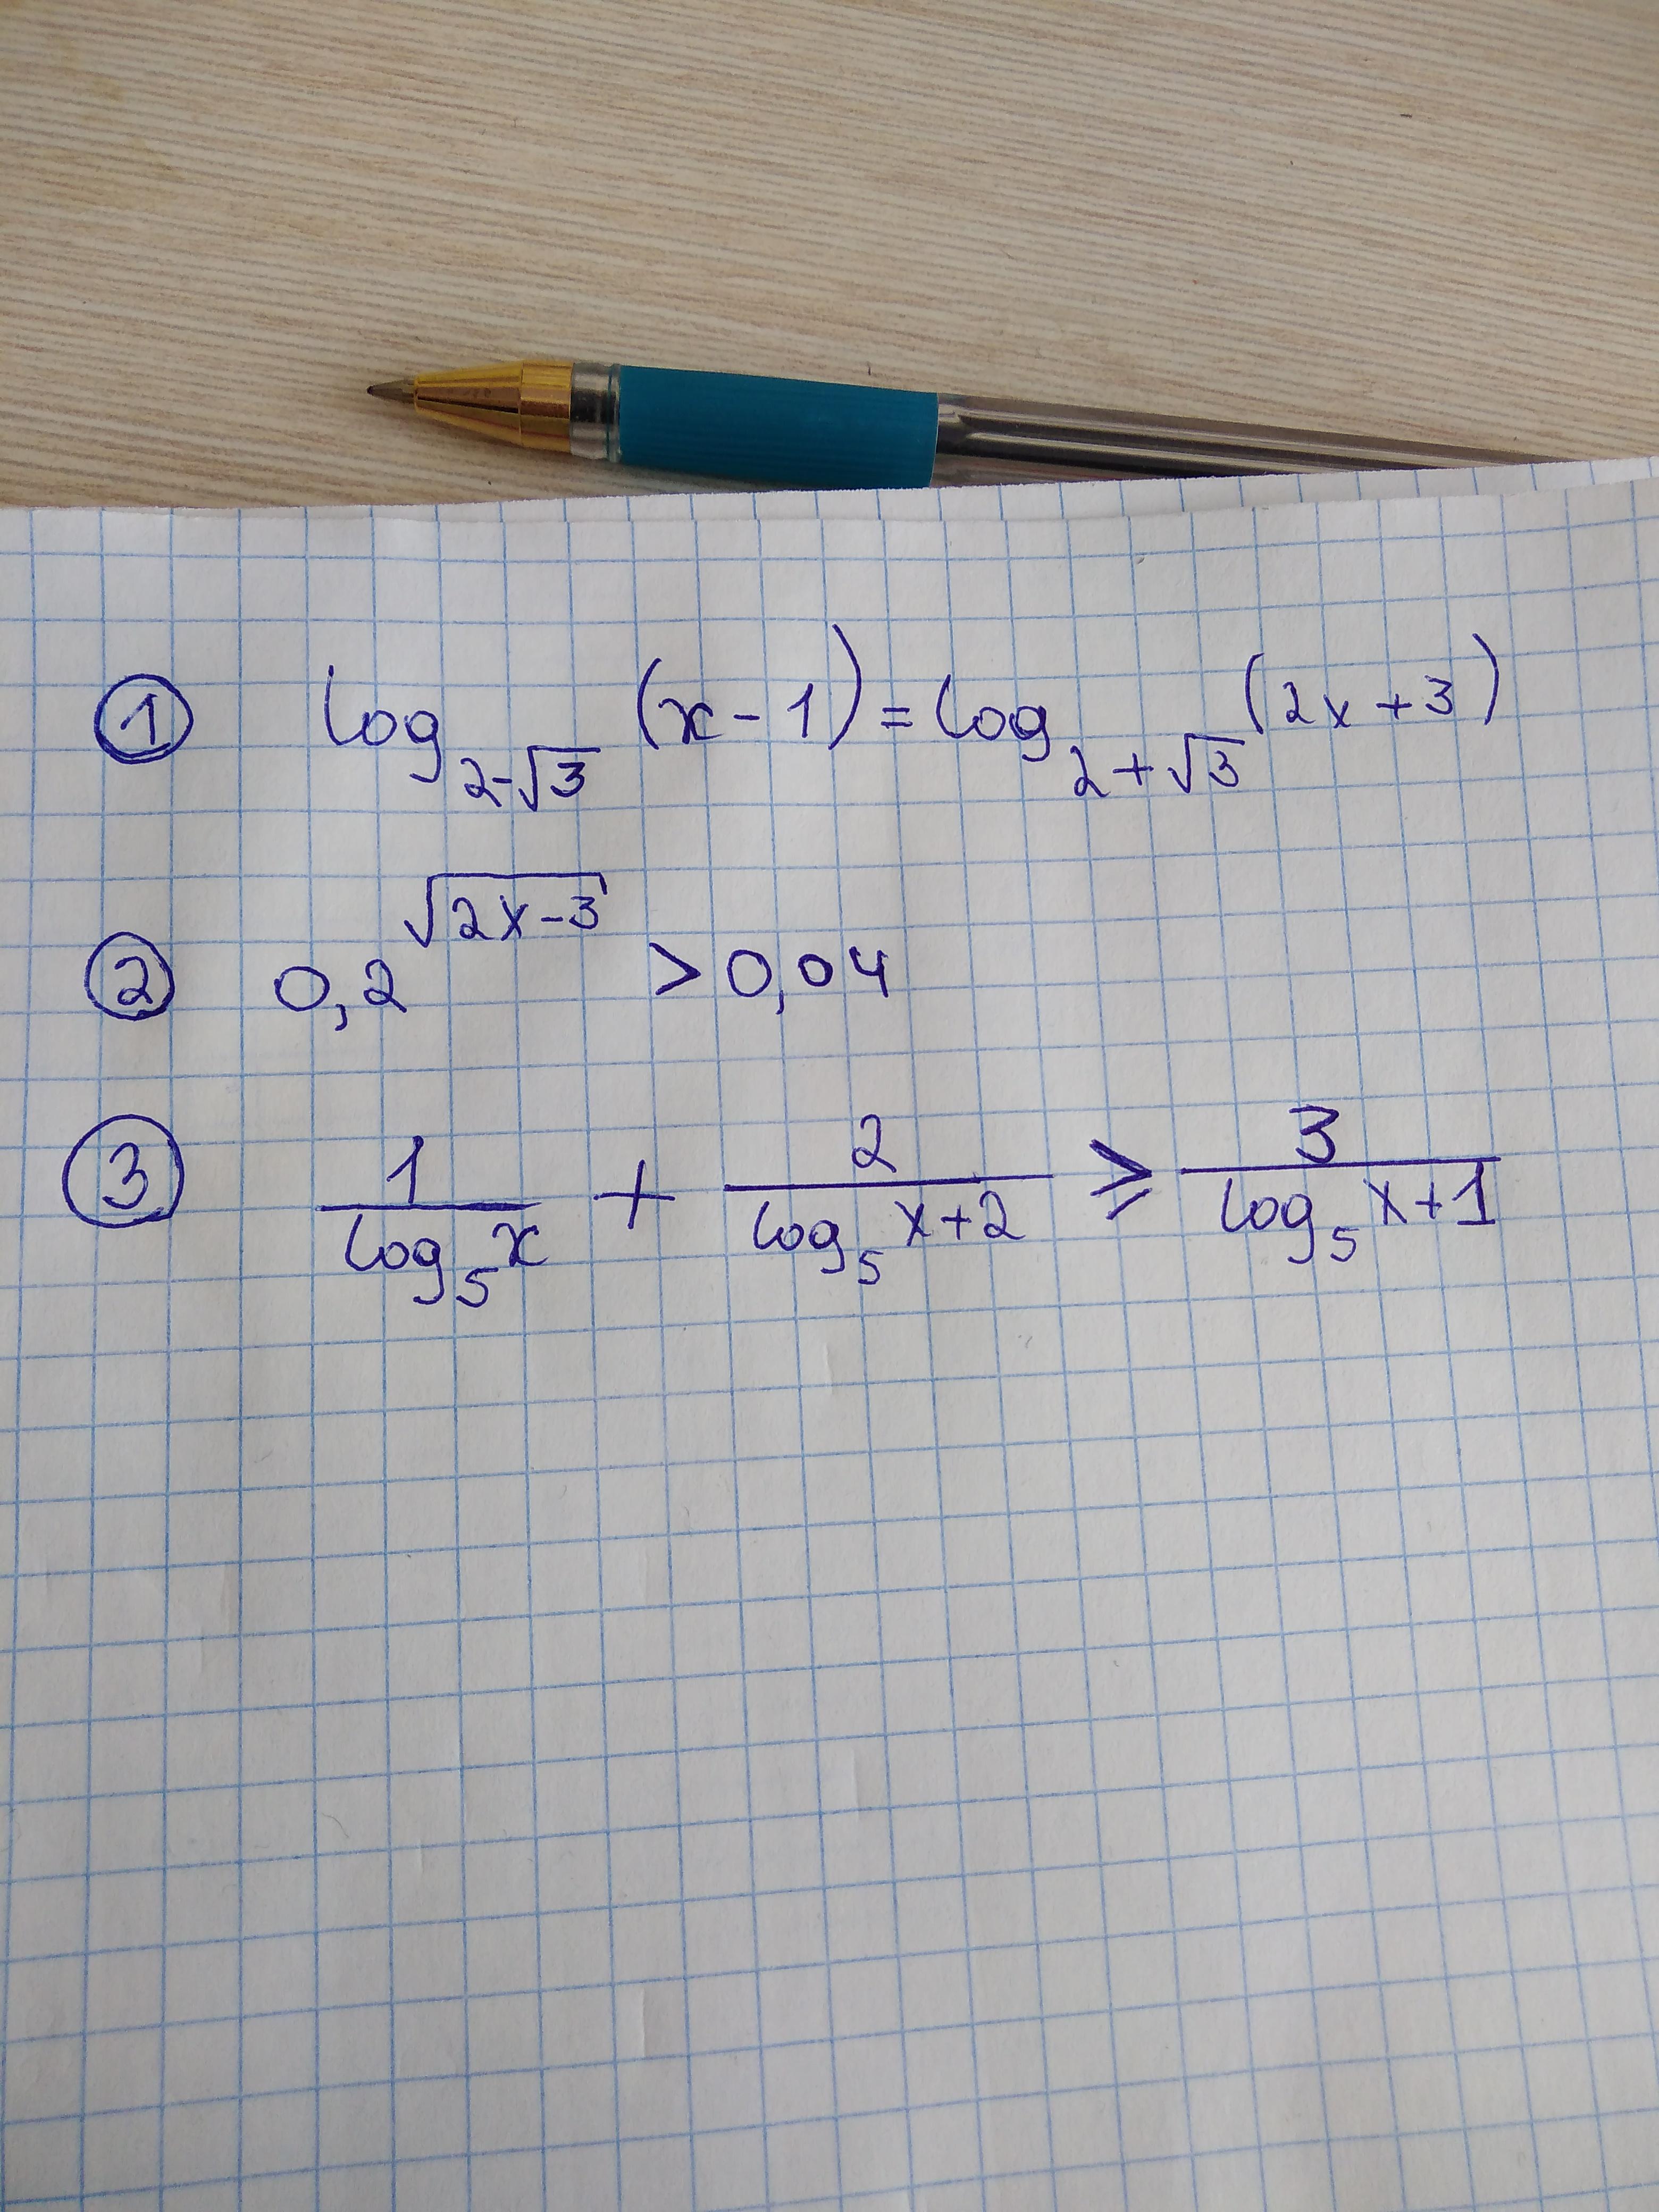 ① log₂₋√₃ (x-1) = log₂₊√₃ (2x+3)
② 0,2^√(2x-3) > 0,04
③ 1/(log₅ x) + 2/(log₅ x+2) ⩾ 3/(log₅ x+1)